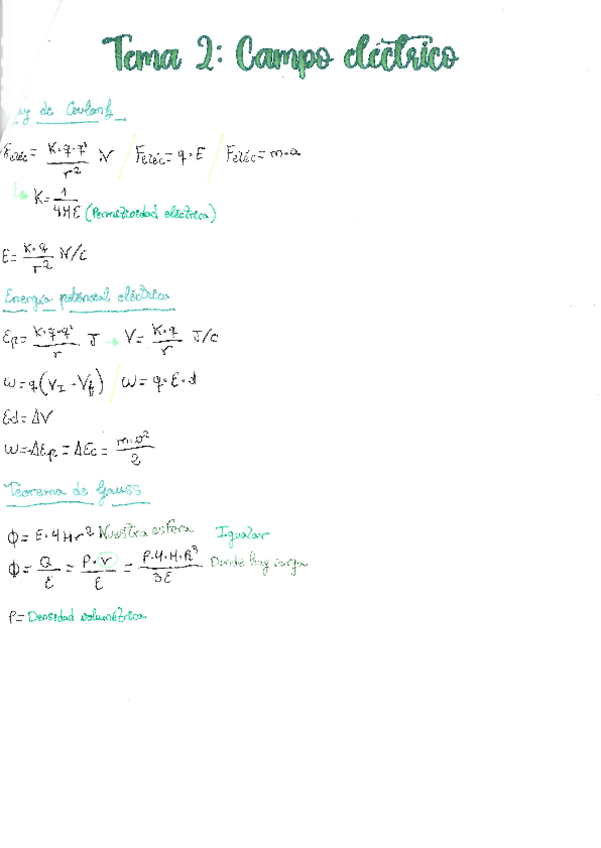 Tema 2: Campo eléctrico
ey de Coulomb
Feléc = K·q·q' / r² N / Feléc = q·E / Feléc = m·a
↳ K = 1 / 4πε (Permitividad eléctrica)
E = K·q / r² N/C
Energía potencial eléctrica
Ep = K·q·q' / r J → V = K·q / r J/C
W = q(V_I - V_f) / W = q·E·d
Ed = ΔV
W = -ΔEp = ΔEc = m·v² / 2
Teorema de Gauss
Φ = E·4πr² Nuestra esfera Igualar
Φ = Q / ε = ρ·V / ε = ρ·4·π·R³ / 3ε Donde hay carga
ρ = Densidad volumétrica